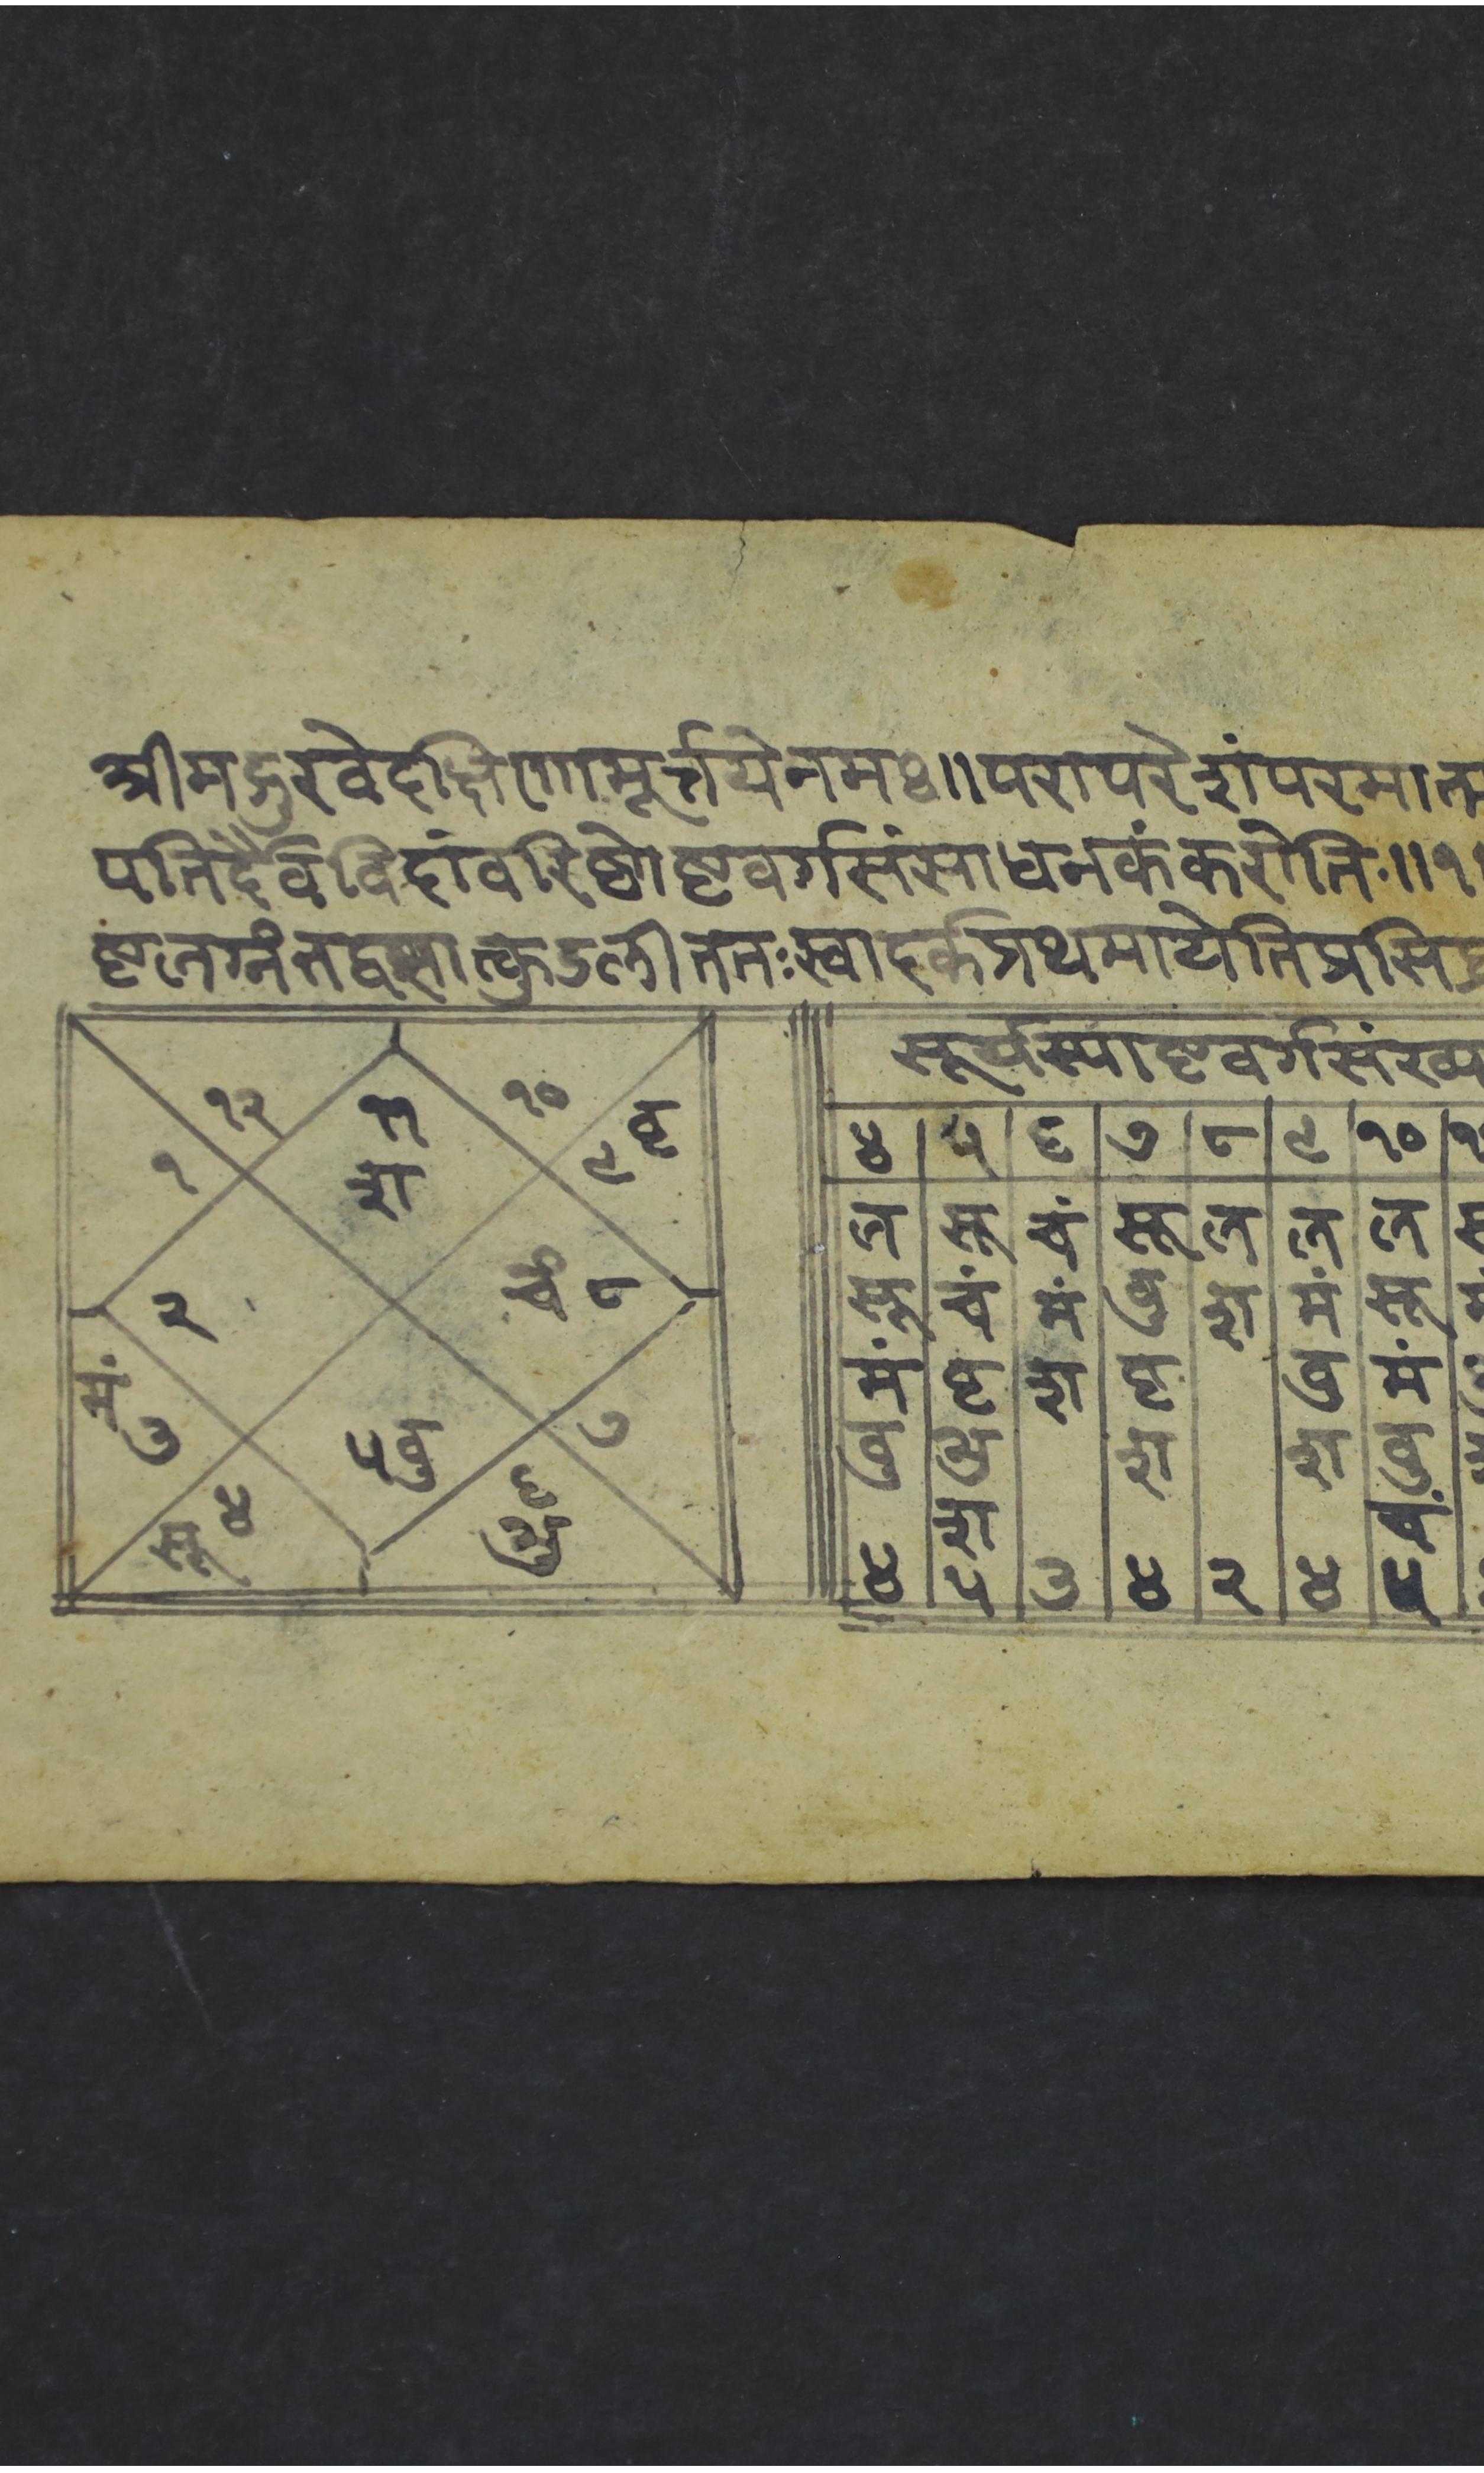 श्रीमद्गुरवेदक्षिणामूर्त्तयेनमः॥परापरेशंपरमात्म
पतिर्दैवविदांवरिष्ठोष्टवर्गसंसाधनकंकरोति॥१
ष्टलग्नं कुंडलीततःस्वादर्कप्रथमाटयेतिप्रसि
१२
११
श
१०
९ वृ
१
२
चं ८
मं
३
५ बु
७
सू ४
६
शु
सूर्यस्याष्टवर्गसंख्या
४ ५ ६ ७ ८ ९ १०
ल सू चं सू ल ल ल
सू चं मं बु श मं सू
मं वृ श वृ बु मं
बु शु श श बु
श वृ
४ ५ ३ ४ २ ४ ५